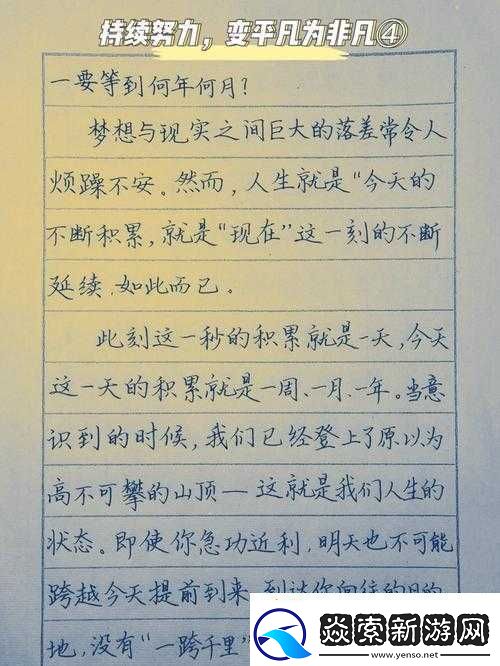 持续努力，变平凡为非凡④
一要等到何年何月？
梦想与现实之间巨大的落差常令人
烦躁不安。然而，人生就是“今天的
不断积累，就是“现在”这一刻的不断
延续，如此而已。
此刻这一秒的积累就是一天，今天
这一天的积累就是一周、一月、一年。当意
识到的时候，我们已经登上了原以为
高不可攀的山顶—这就是我们人生的
状态。即使你急功近利，明天也不可能
跨越今天提前到来。到达你向往的目的
地，没有“一跨千里”
焱索新游网
www.yenso.net